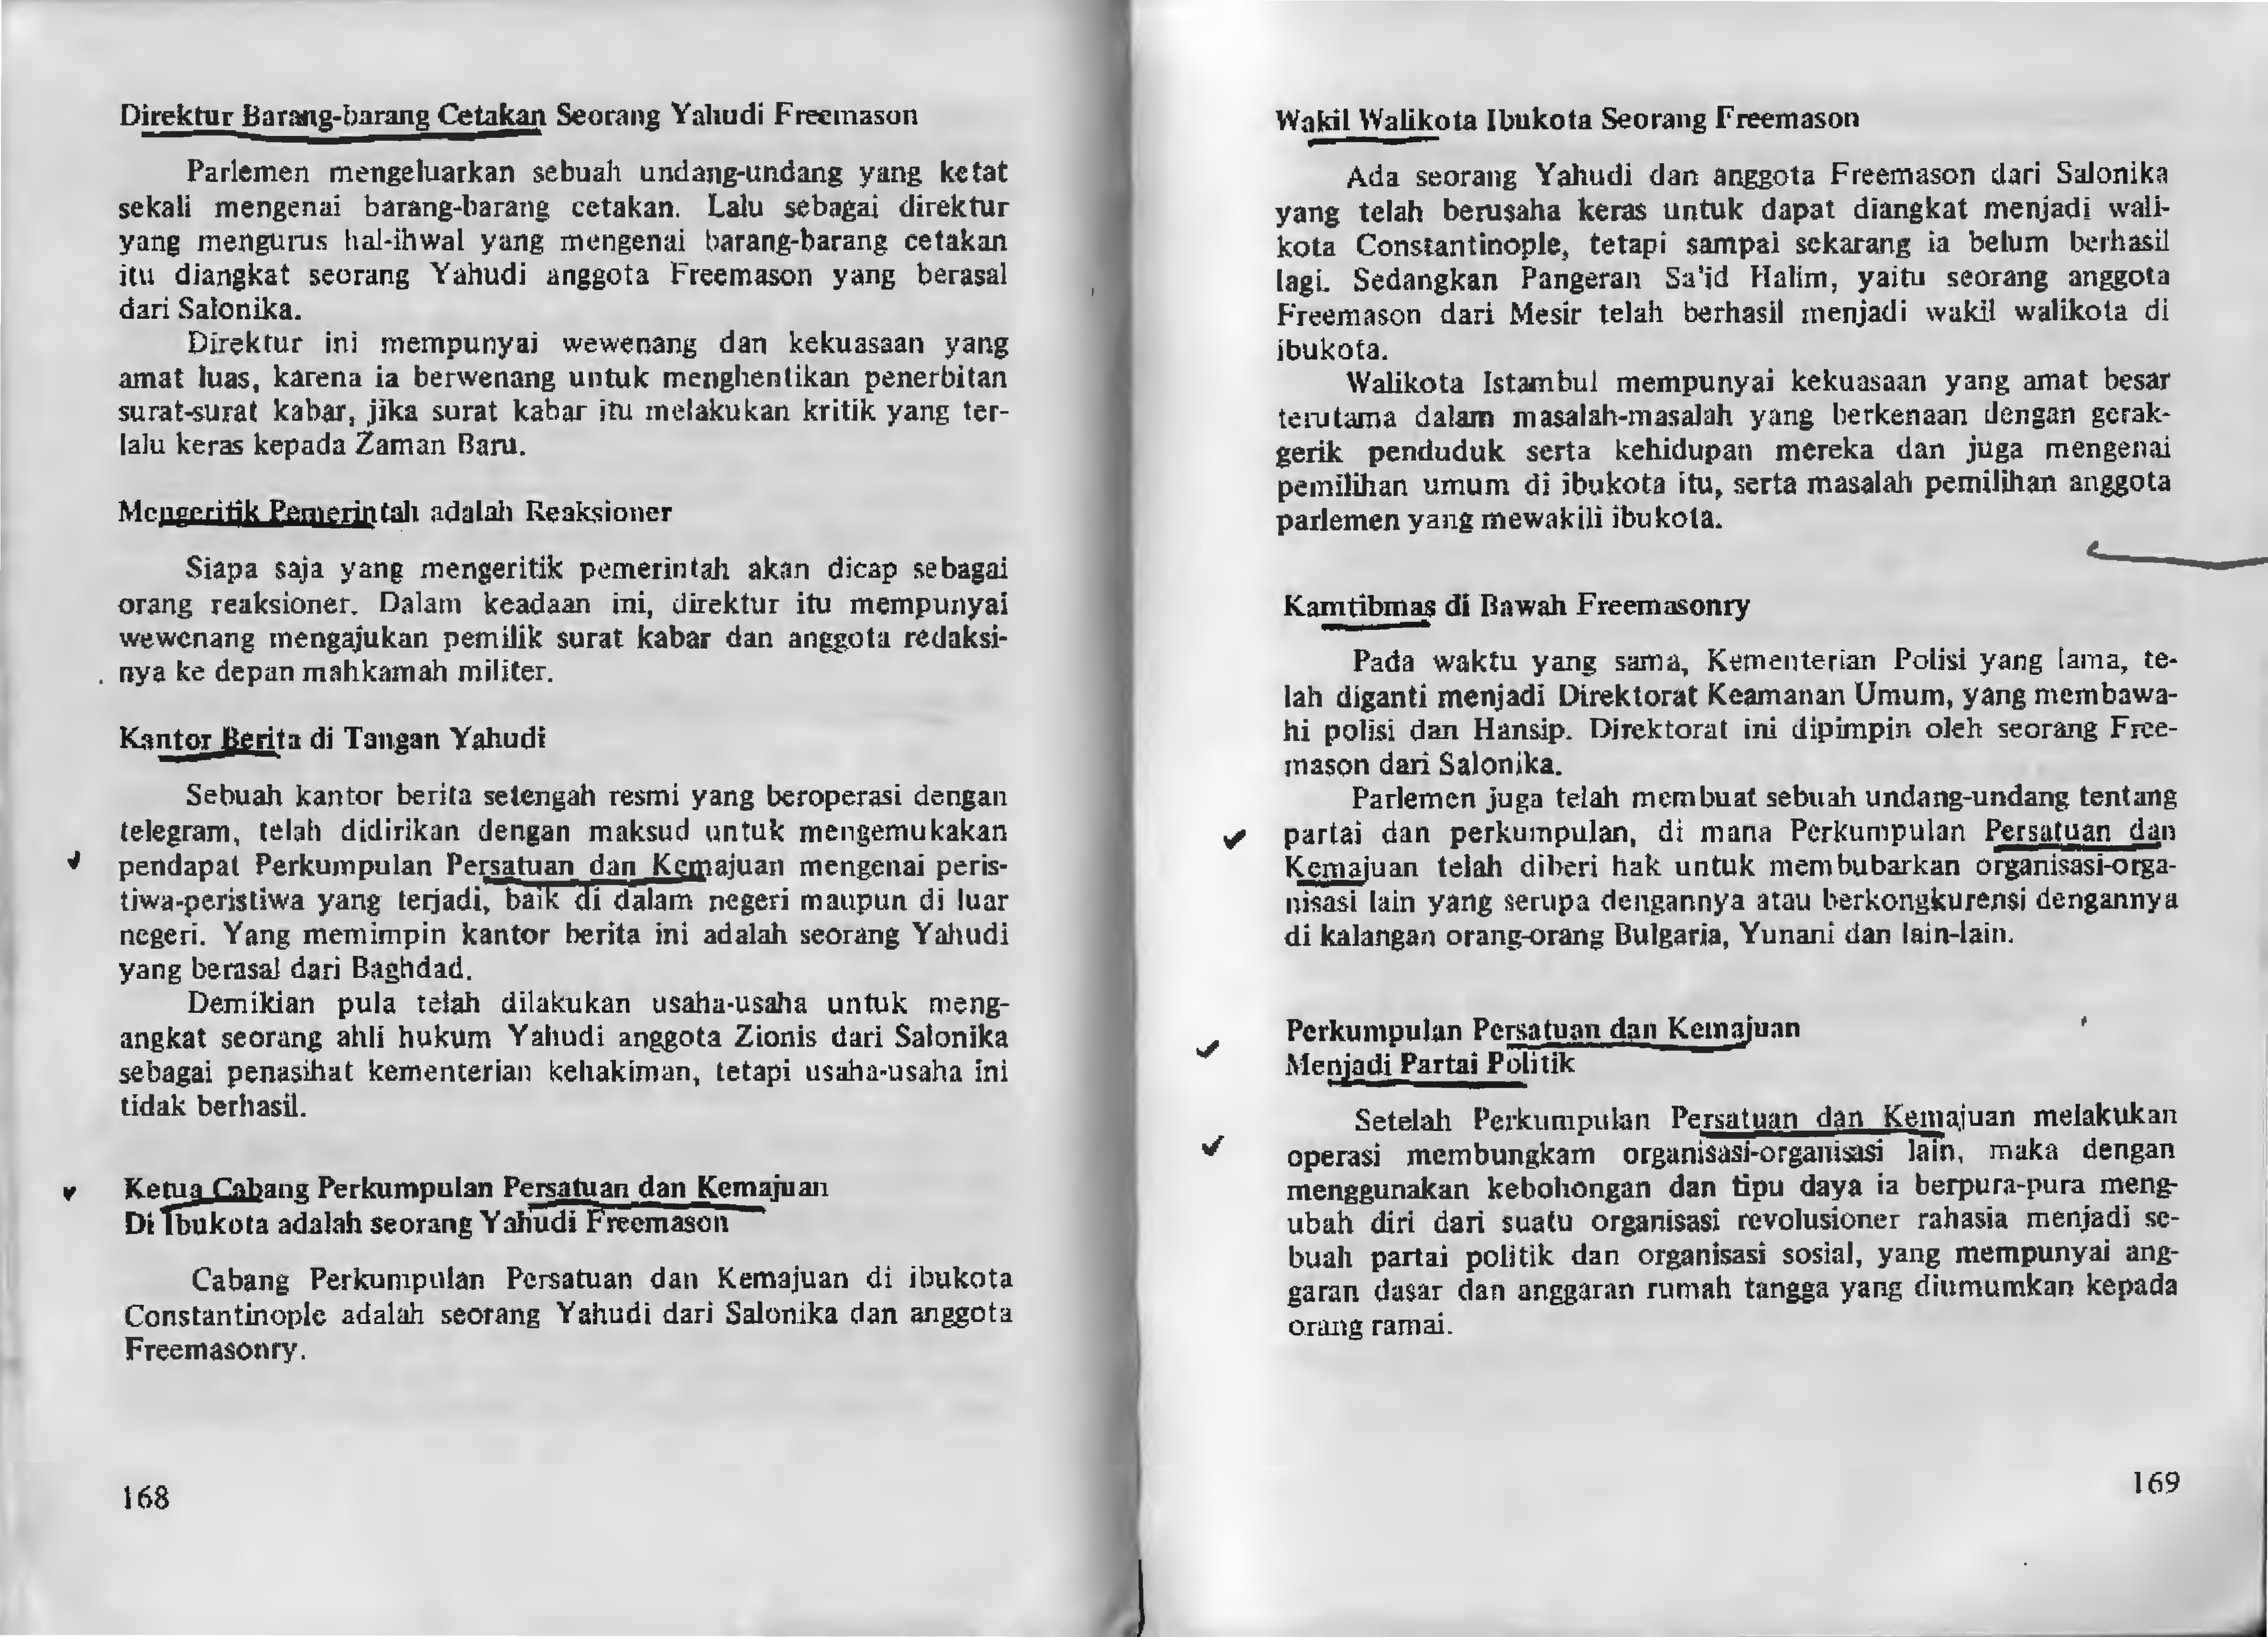 Direktur Barang-barang Cetakan Seorang Yahudi Freemason
Parlemen mengeluarkan sebuah undang-undang yang ketat
sekali mengenai barang-barang cetakan. Lalu sebagai direktur
yang mengurus hal-ihwal yang mengenai barang-barang cetakan
itu diangkat seorang Yahudi anggota Freemason yang berasal
dari Salonika.
Direktur ini mempunyai wewenang dan kekuasaan yang
amat luas, karena ia berwenang untuk menghentikan penerbitan
surat-surat kabar, jika surat kabar itu melakukan kritik yang ter-
lalu keras kepada Zaman Baru.
Mengeritik Pemerintah adalah Reaksioner
Siapa saja yang mengeritik pemerintah akan dicap sebagai
orang reaksioner. Dalam keadaan ini, direktur itu mempunyai
wewenang mengajukan pemilik surat kabar dan anggota redaksi-
nya ke depan mahkamah militer.
Kantor Berita di Tangan Yahudi
Sebuah kantor berita setengah resmi yang beroperasi dengan
telegram, telah didirikan dengan maksud untuk mengemukakan
pendapat Perkumpulan Persatuan dan Kemajuan mengenai peris-
tiwa-peristiwa yang terjadi, baik di dalam negeri maupun di luar
negeri. Yang memimpin kantor berita ini adalah seorang Yahudi
yang berasal dari Baghdad.
Demikian pula telah dilakukan usaha-usaha untuk meng-
angkat seorang ahli hukum Yahudi anggota Zionis dari Salonika
sebagai penasihat kementerian kehakiman, tetapi usaha-usaha ini
tidak berhasil.
Ketua Cabang Perkumpulan Persatuan dan Kemajuan
Di Ibukota adalah seorang Yahudi Freemason
Cabang Perkumpulan Persatuan dan Kemajuan di ibukota
Constantinople adalah seorang Yahudi dari Salonika dan anggota
Freemasonry.
168
Wakil Walikota Ibukota Seorang Freemason
Ada seorang Yahudi dan anggota Freemason dari Salonika
yang telah berusaha keras untuk dapat diangkat menjadi wali-
kota Constantinople, tetapi sampai sekarang ia belum berhasil
lagi. Sedangkan Pangeran Sa'id Halim, yaitu seorang anggota
Freemason dari Mesir telah berhasil menjadi wakil walikota di
ibukota.
Walikota Istambul mempunyai kekuasaan yang amat besar
terutama dalam masalah-masalah yang berkenaan dengan gerak-
gerik penduduk serta kehidupan mereka dan juga mengenai
pemilihan umum di ibukota itu, serta masalah pemilihan anggota
parlemen yang mewakili ibukota.
Kamtibmas di Bawah Freemasonry
Pada waktu yang sama, Kementerian Polisi yang lama, te-
lah diganti menjadi Direktorat Keamanan Umum, yang membawa-
hi polisi dan Hansip. Direktorat ini dipimpin oleh seorang Free-
mason dari Salonika.
Parlemen juga telah membuat sebuah undang-undang tentang
partai dan perkumpulan, di mana Perkumpulan Persatuan dan
Kemajuan telah diberi hak untuk membubarkan organisasi-orga-
nisasi lain yang serupa dengannya atau berkongkurensi dengannya
di kalangan orang-orang Bulgaria, Yunani dan lain-lain.
Perkumpulan Persatuan dan Kemajuan
Menjadi Partai Politik
Setelah Perkumpulan Persatuan dan Kemajuan melakukan
operasi membungkam organisasi-organisasi lain, maka dengan
menggunakan kebohongan dan tipu daya ia berpura-pura meng-
ubah diri dari suatu organisasi revolusioner rahasia menjadi se-
buah partai politik dan organisasi sosial, yang mempunyai ang-
garan dasar dan anggaran rumah tangga yang diumumkan kepada
orang ramai.
169